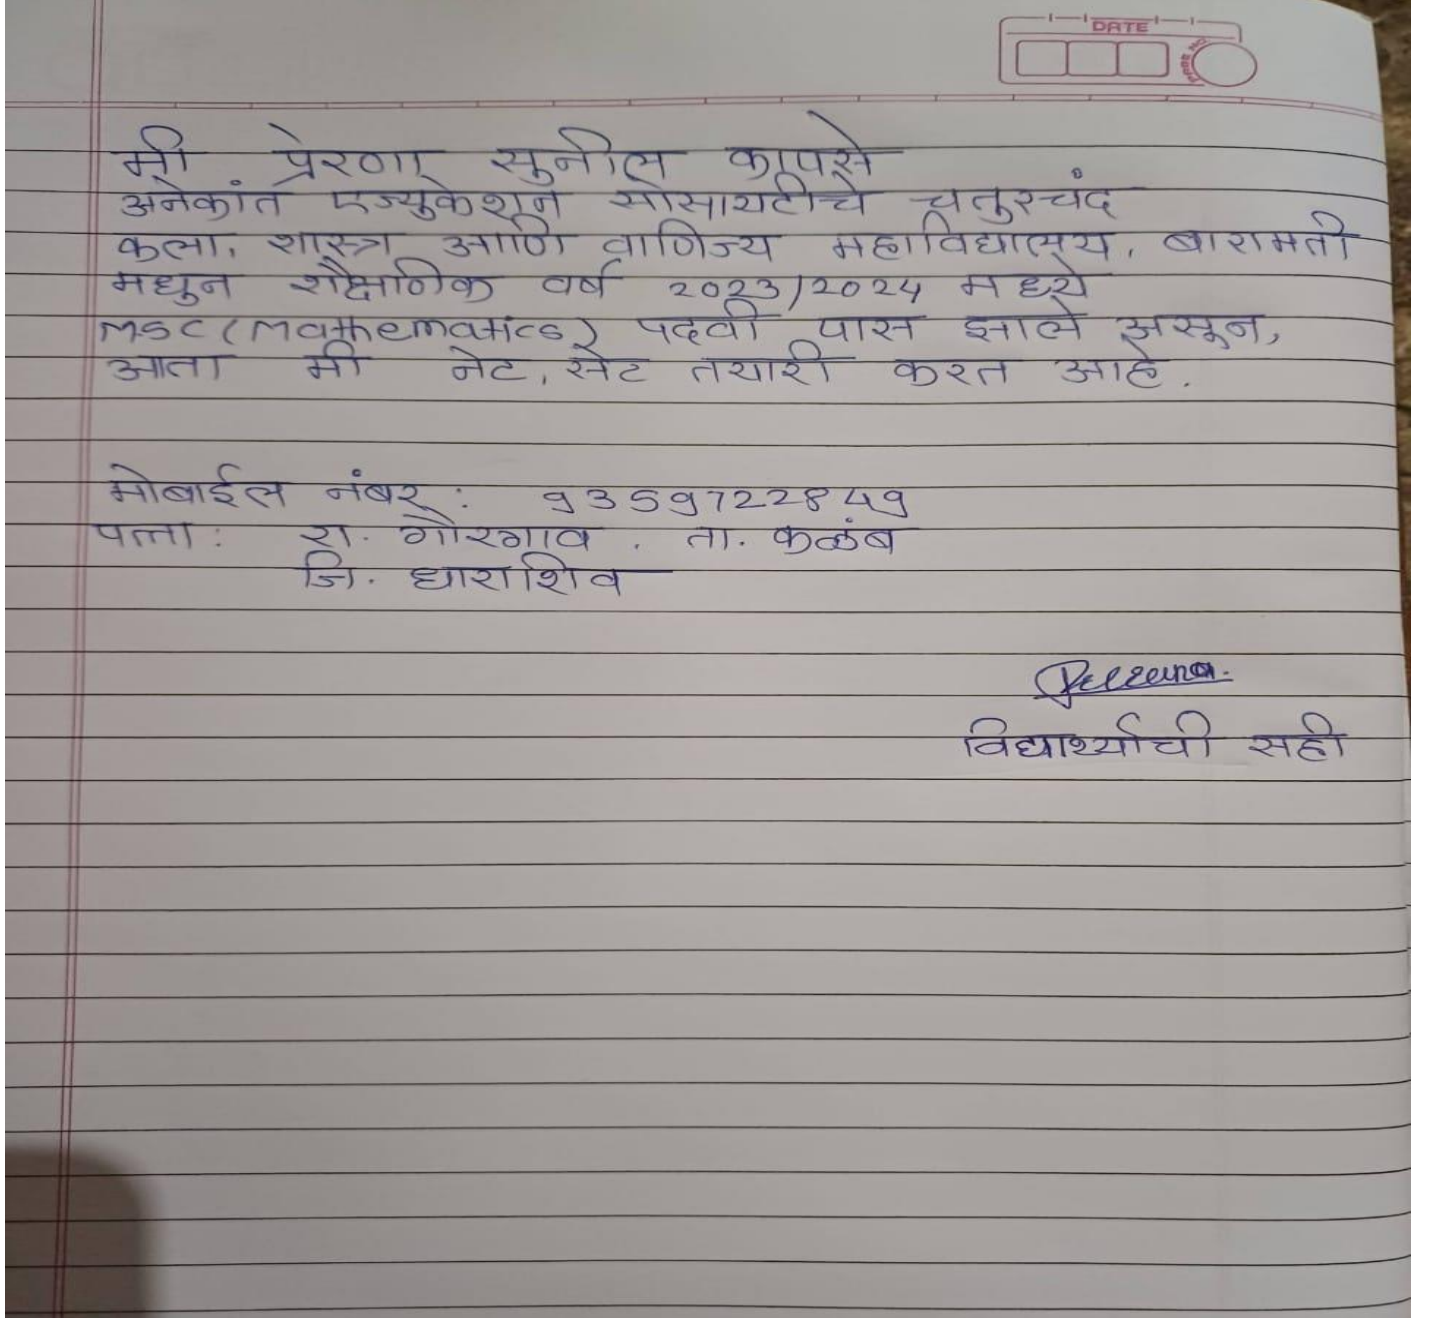 DATE
Page No.
मी प्रेरणा सुनील कापसे
अनेकांत एज्युकेशन सोसायटीचे चतुरचंद
कला, शास्त्र आणि वाणिज्य महाविद्यालय, बारामती
मधुन शैक्षणिक वर्ष 2023/2024 मध्ये
MSC (Mathematics) पदवी पास झाले असून,
आता मी नेट, सेट तयारी करत आहे.
मोबाईल नंबर : 9359722849
पत्ता : रा. गौरगाव . ता. कळंब
जि. धाराशिव
Prerana.
विद्यार्थ्याची सही